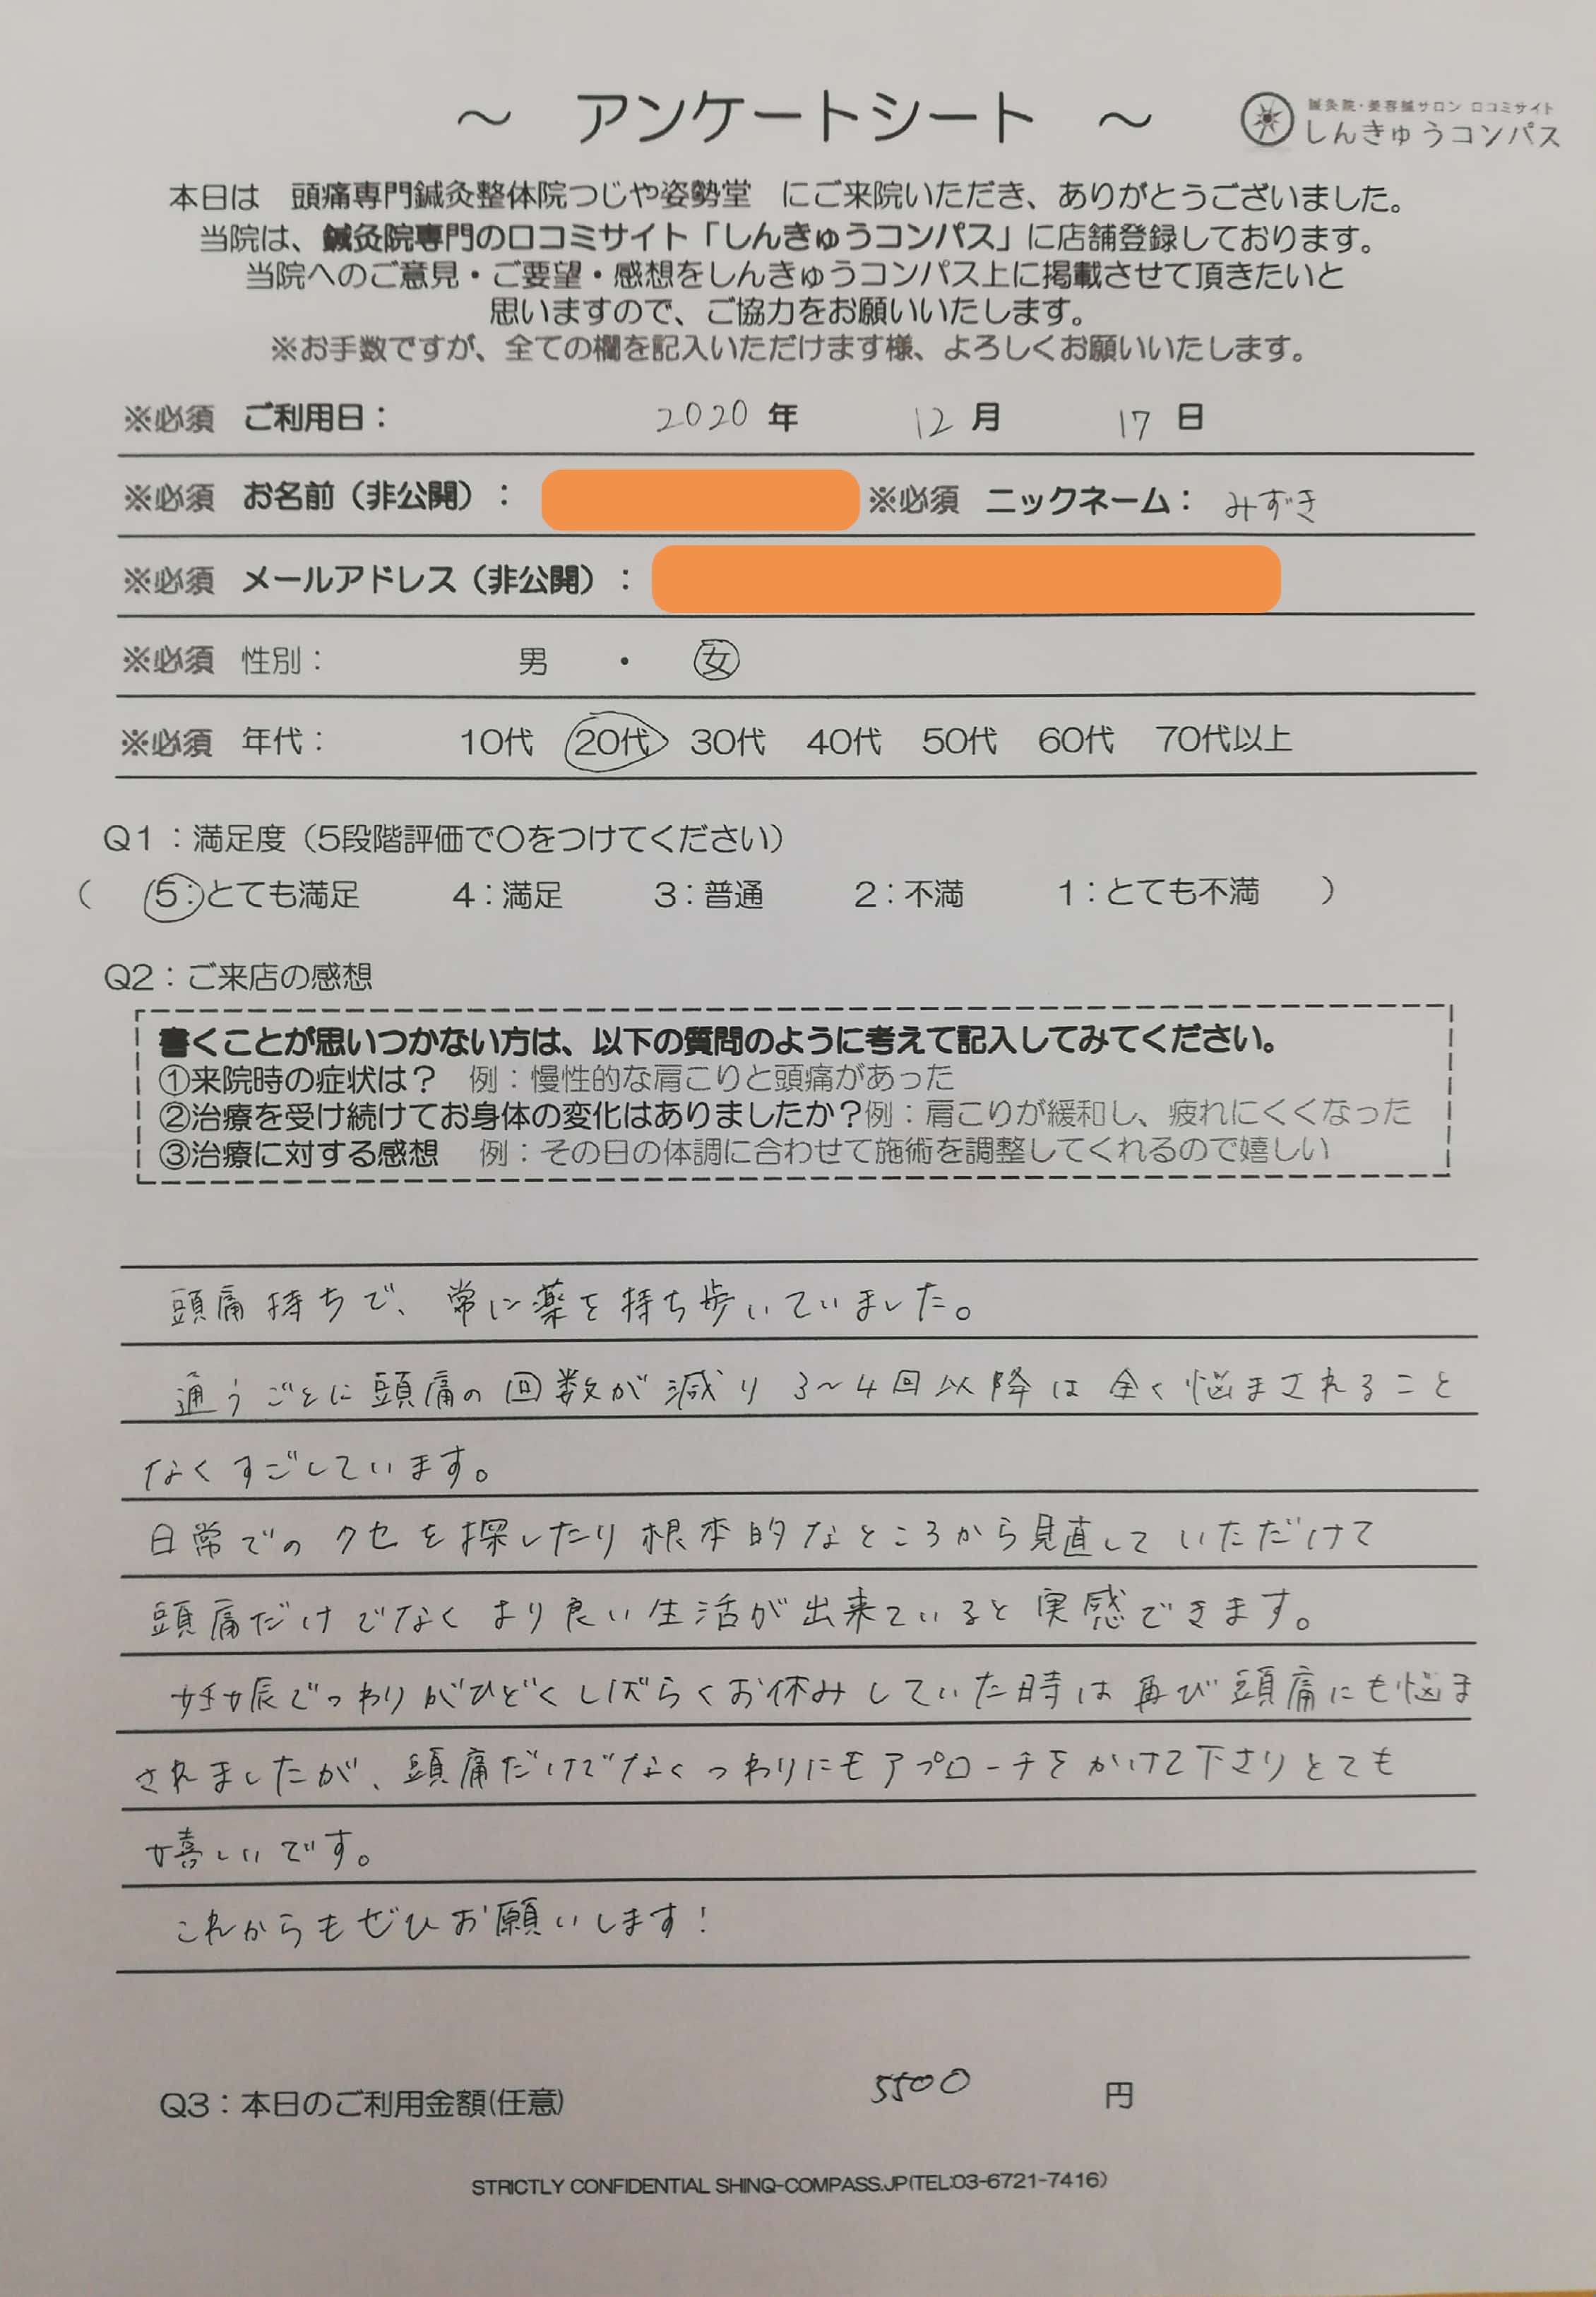 ～ アンケートシート ～
鍼灸院・美容鍼サロン 口コミサイト
しんきゅうコンパス
本日は 頭痛専門鍼灸整体院つじや姿勢堂 にご来院いただき、ありがとうございました。
当院は、鍼灸院専門の口コミサイト「しんきゅうコンパス」に店舗登録しております。
当院へのご意見・ご要望・感想をしんきゅうコンパス上に掲載させて頂きたいと
思いますので、ご協力をお願いいたします。
※お手数ですが、全ての欄を記入いただけます様、よろしくお願いいたします。
※必須 ご利用日： 2020 年 12 月 17 日
※必須 お名前（非公開）： ※必須 ニックネーム： みずき
※必須 メールアドレス（非公開）：
※必須 性別： 男 ・ 女
※必須 年代： 10代 20代 30代 40代 50代 60代 70代以上
Q1：満足度（5段階評価で〇をつけてください）
（ 5：とても満足 4：満足 3：普通 2：不満 1：とても不満 ）
Q2：ご来店の感想
書くことが思いつかない方は、以下の質問のように考えて記入してみてください。
①来院時の症状は？ 例：慢性的な肩こりと頭痛があった
②治療を受け続けてお身体の変化はありましたか？例：肩こりが緩和し、疲れにくくなった
③治療に対する感想 例：その日の体調に合わせて施術を調整してくれるので嬉しい
頭痛持ちで、常に薬を持ち歩いていました。
通うごとに頭痛の回数が減り 3～4回以降は全く悩まされること
なくすごしています。
日常でのクセを探したり根本的なところから見直していただけて
頭痛だけでなくより良い生活が出来ていると実感できます。
妊娠でつわりがひどくしばらくお休みしていた時は再び頭痛にも悩ま
されましたが、頭痛だけでなくつわりにもアプローチをかけて下さりとても
嬉しいです。
これからもぜひお願いします！
Q3：本日のご利用金額(任意) 5500 円
STRICTLY CONFIDENTIAL SHINQ-COMPASS.JP(TEL:03-6721-7416)